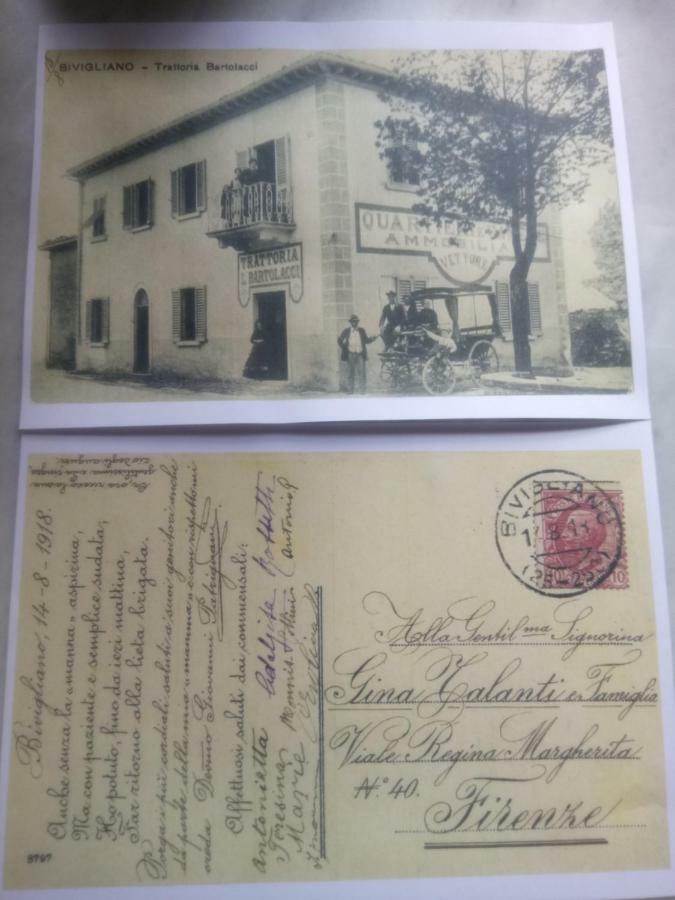 BIVIGLIANO - Trattoria Bartolacci
QUARTIERE
AMMOBILIA
VETTURE
TRATTORIA
BARTOLACCI
Bivigliano, 14-8-1918.
Anche senza la «manna» aspirina,
Ma con paziente e semplice sudata,
Ho potuto, fino da ieri mattina,
Far ritorno alla lieta brigata.
Porga i più cordiali saluti a' suoi genitori anche
da parte della mia «mamma» e con rispetto mi
creda Devmo Giovanni
Affettuosi saluti dai commensali:
Antonietta
Teresina
Marie
BIVIGLIANO
10
Alla Gentil.ma Signorina
Gina Talanti e Famiglia
Viale Regina Margherita
N.° 40.
Firenze
8797